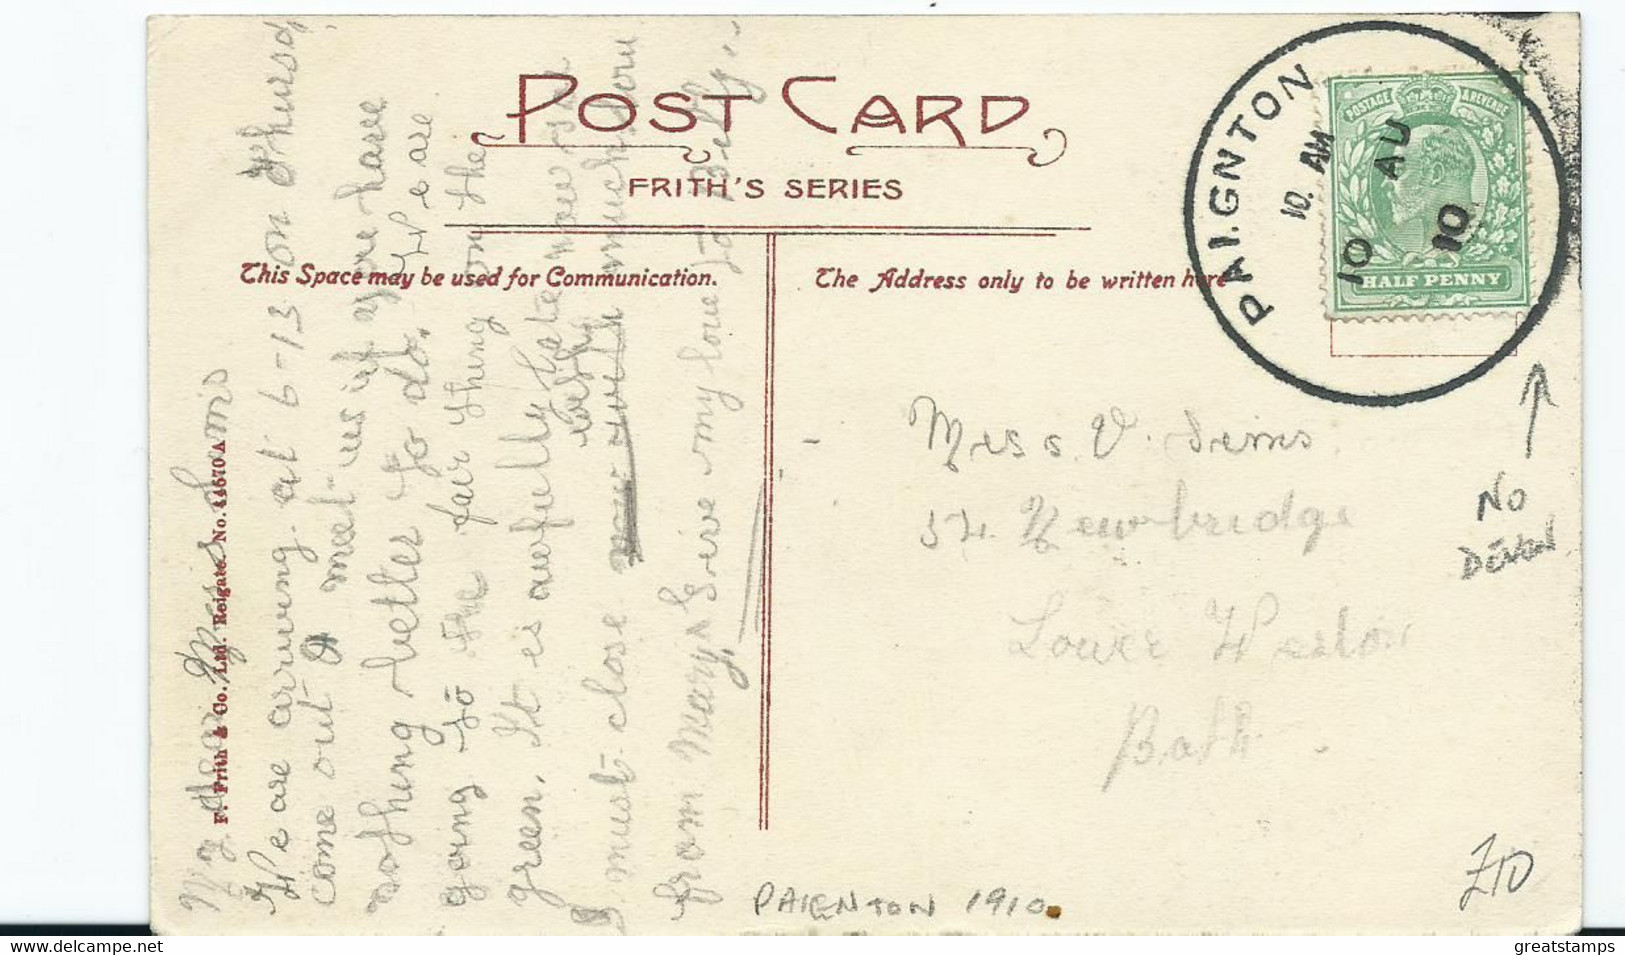 POST CARD
FRITH'S SERIES
This Space may be used for Communication.
The Address only to be written here
PAIGNTON
10. AM
10 AU
10
POSTAGE & REVENUE
HALF PENNY
F. Frith & Co. Ltd. Reigate. No. 44570 A
My dear
We are arriving at 6-13 on Thursd
come out & meet us if you have
nothing better to do. We are
going to the fair thing on the
green. It is awfully late now
I must close with much love
from Mary. Give my love to Betty.
Miss V. Sims
54 Newbridge
Lower Weston
Bath.
NO
DEVON
£10
PAIENTON 1910
greatstamps